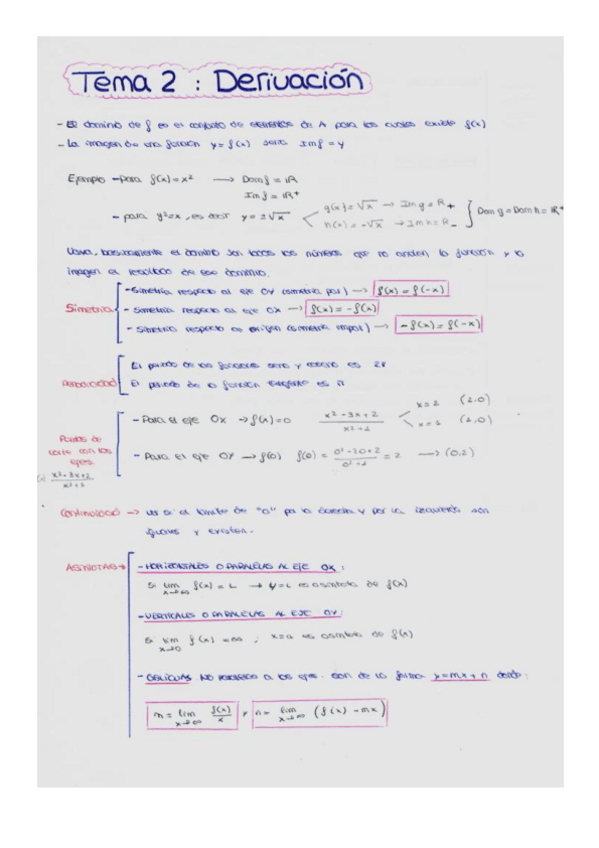 Tema 2 : Derivación
- El dominio de f es el conjunto de elementos de A para los cuales existe f(x)
- La imagen de una función y = f(x) será Im f = y
Ejemplo - para f(x) = x² → Dom f = ℝ
Im f = ℝ⁺
- para y² = x, es decir y = ±√x
g(x) = √x → Im g = ℝ₊
h(x) = -√x → Im h = ℝ₋
Dom g = Dom h = ℝ⁺
básicamente el dominio son todos los números que no anulan la función y la
imagen el resultado de ese dominio.
Simetría
- Simetría respecto al eje OY (simetría par) → f(x) = f(-x)
- Simetría respecto al eje OX → f(x) = -f(x)
- Simetría respecto al origen (simetría impar) → -f(x) = f(-x)
Periodicidad
El periodo de las funciones seno y coseno es 2π
El periodo de la función tangente es π
Puntos de corte con los ejes.
(*) x² - 3x + 2 / x² + 1
- Para el eje OX → f(x) = 0 x² - 3x + 2 / x² + 1
x = 2 (2,0)
(1,0)
- Para el eje OY → f(0) f(0) = 0² - 3·0 + 2 / 0² + 1 = 2 → (0,2)
Continuidad → ver si el límite de "0" por la derecha y por la izquierda son
iguales y existen.
ASÍNTOTAS →
- HORIZONTALES O PARALELAS AL EJE OX :
Si lim x→∞ f(x) = L → y = L es asíntota de f(x)
- VERTICALES O PARALELAS AL EJE OY :
Si lim f(x) = ∞ ; x = a es asíntota de f(x)
- OBLICUAS NO paralelas a los ejes. Son de la forma y = mx + n donde :
m = lim x→∞ f(x)/x y n = lim x→∞ (f(x) - mx)